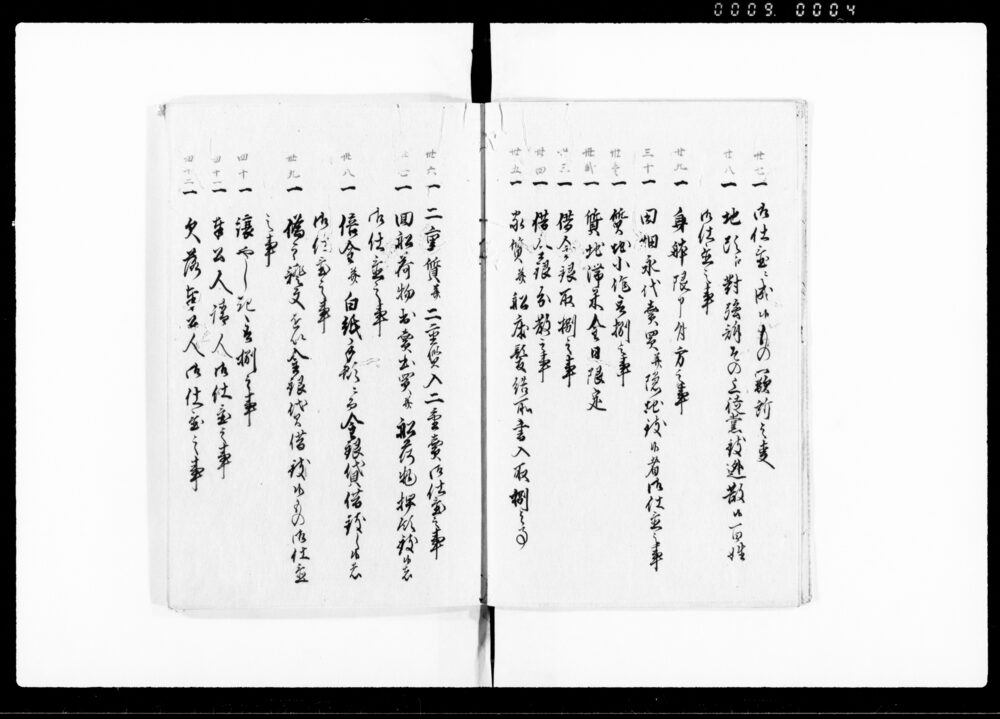 0009 0004
廿七 一 御仕置ニ成候もの闕所之事
廿八 一 地頭江對強訴その上徒黨致逃散候百姓
御仕置之事
廿九 一 身躰限申付方之事
三十 一 田畑永代賣買并隠地致候者御仕置之事
卅壱 一 質地小作取捌之事
卅弐 一 質地滞米金日限定
卅三 一 借金銀取捌之事
卅四 一 借金銀分散之事
卅五 一 家質并船床髪結所書入取捌之事
卅六 一 二重質并二重質入二重賣御仕置之事
卅七 一 回船荷物出賣出買并船荷物押領致候者
御仕置之事
卅八 一 倍金并白紙手形ニ而金銀貸借致候者
御仕置之事
卅九 一 偽之証文を以金銀貸借致候もの御仕置
之事
四十 一 譲やしき取捌之事
四十一 一 奉公人請人御仕置之事
四十二 一 欠落奉公人御仕置之事